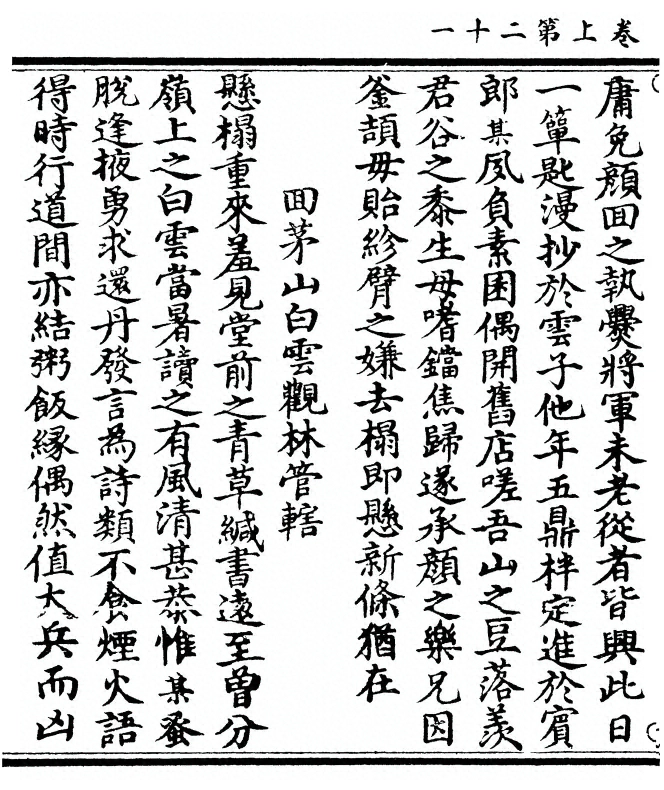 卷上第二十一
庸免顔回之執爨將軍未老從者皆興此日
一簞匙漫抄於雲子他年五鼎拌定進於賓
郎某夙負素困偶開舊店嗟吾山之豆落羨
君谷之黍生母嗜鐺焦歸遂承顔之樂兄因
釜頡毋貽紾臂之嫌去榻即懸新條猶在
回茅山白雲觀林管轄
懸榻重來羞見堂前之青草緘書遠至曾分
嶺上之白雲當暑讀之有風清甚恭惟某蚤
脫逢掖勇求還丹發言為詩類不食煙火語
得時行道間亦結粥飯緣偶然值大兵而凶